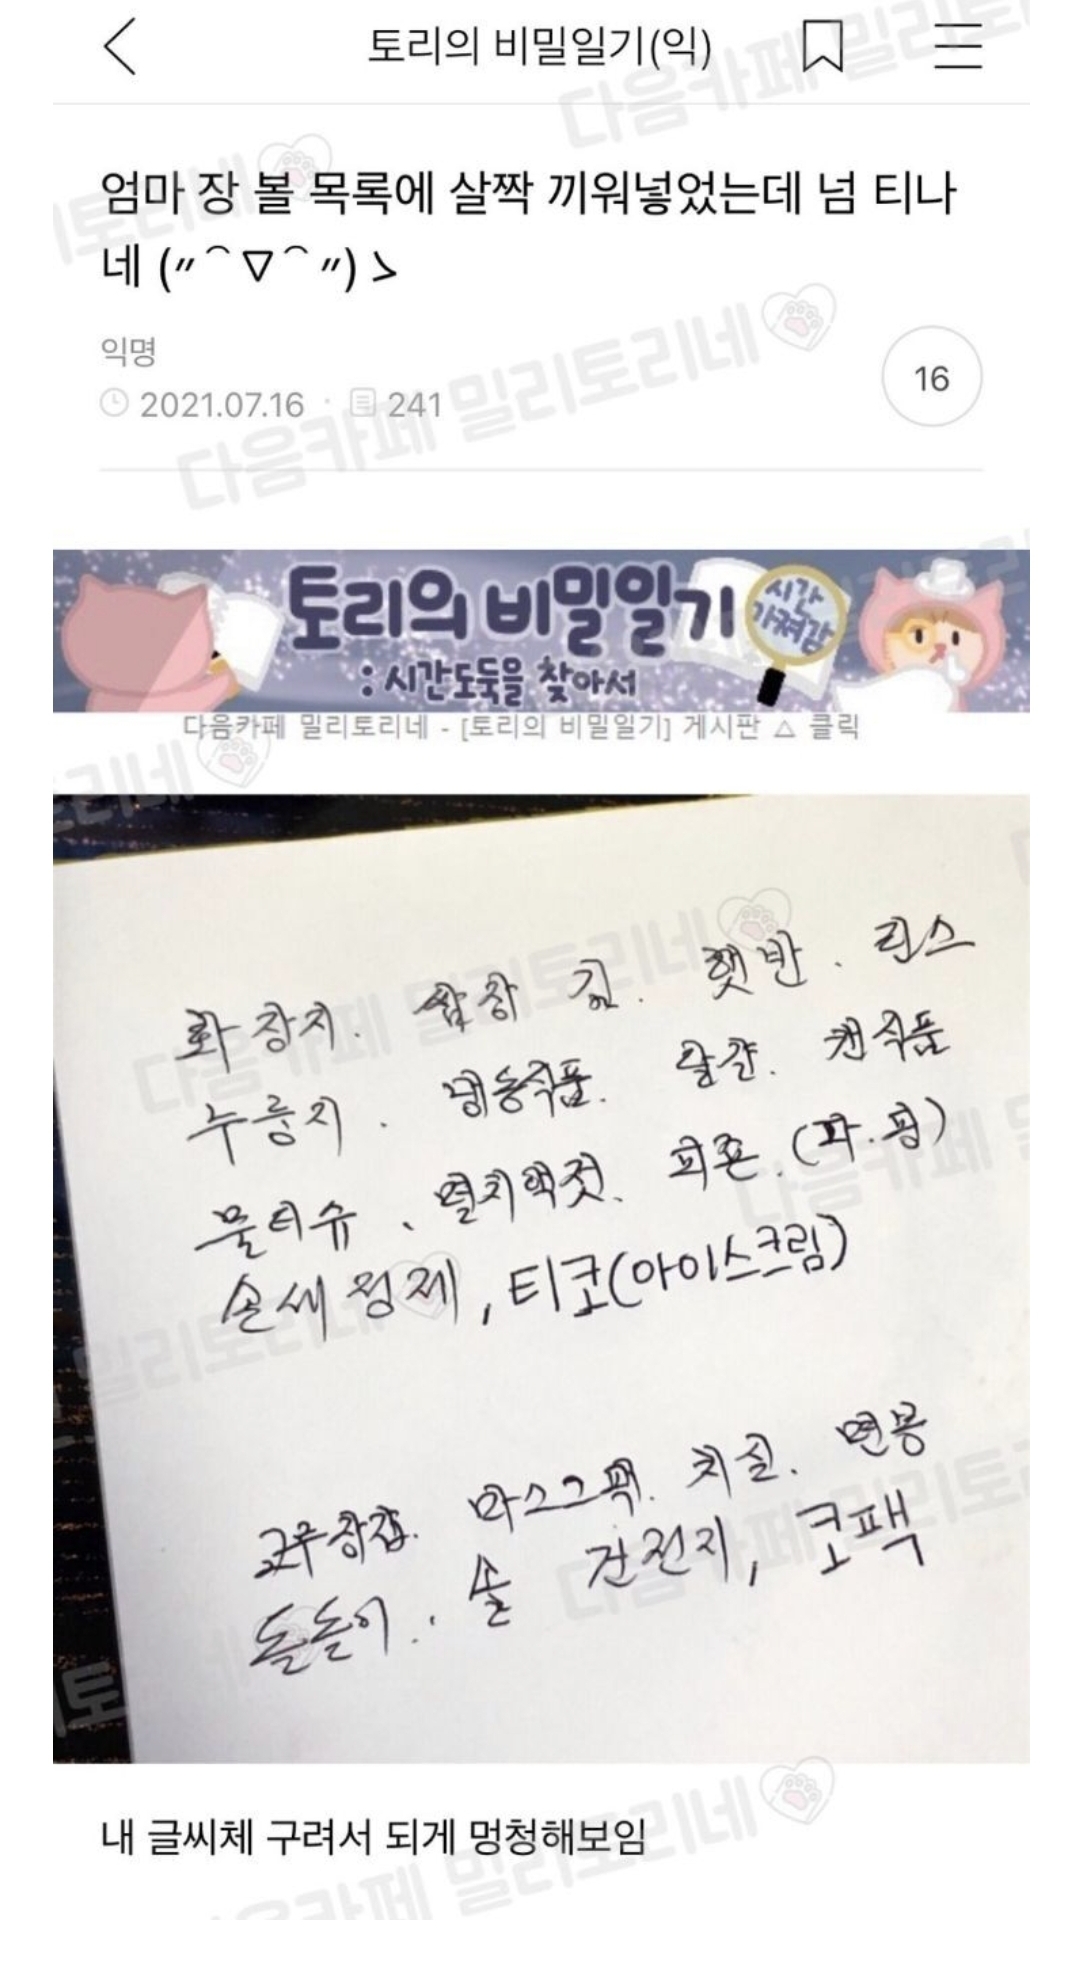 토리의 비밀일기(익)
엄마 장 볼 목록에 살짝 끼워넣었는데 넘 티나
네 (〃⌒▽⌒〃)ゝ
익명
2021.07.16 · 241
16
토리의 비밀일기
시간
가져감
:시간도둑을 찾아서
다음카페 밀리토리네 - [토리의 비밀일기] 게시판 △ 클릭
화장지. 쌈장 김. 햇반. 린스
누룽지. 냉동식품. 달걀. 캔식품
물티슈. 멸치액젓. 피죤. (파.핑)
손세정제, 티코(아이스크림)
고무장갑. 마스크팩. 치실. 면봉
돌돌이. 솔 건전지, 코팩
내 글씨체 구려서 되게 멍청해보임
다음카페 밀리토리네